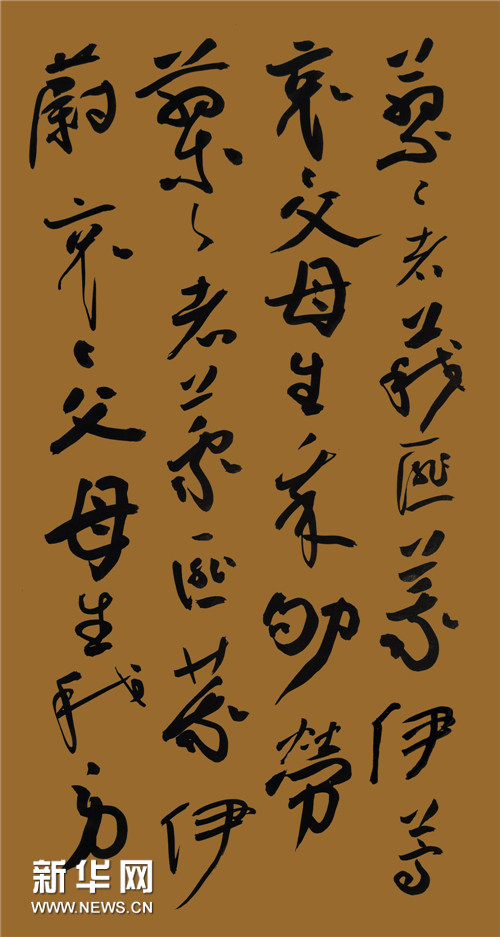 蓼々者莪匪莪伊蒿
哀々父母生我劬勞
蓼々者莪匪莪伊
蔚哀々父母生我劳
新华网
WWW.NEWS.CN